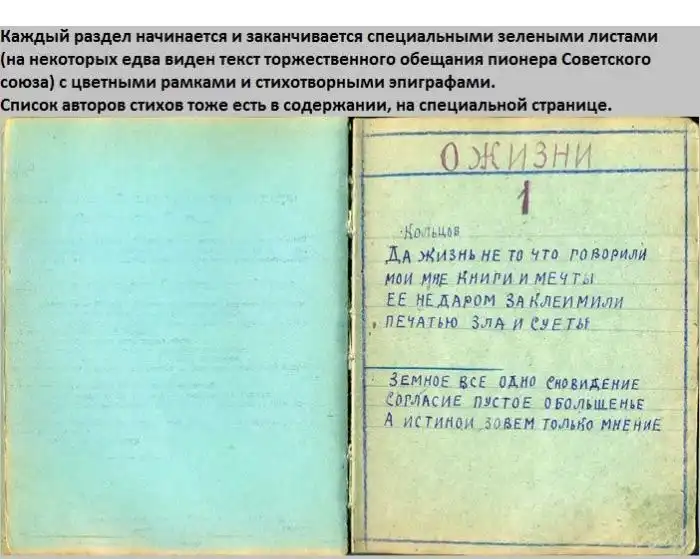 Каждый раздел начинается и заканчивается специальными зелеными листами
(на некоторых едва виден текст торжественного обещания пионера Советского
союза) с цветными рамками и стихотворными эпиграфами.
Список авторов стихов тоже есть в содержании, на специальной странице.
О ЖИЗНИ
1
Кольцов
ДА ЖИЗНЬ НЕ ТО ЧТО ГОВОРИЛИ
МОИ МНЕ КНИГИ И МЕЧТЫ
ЕЕ НЕДАРОМ ЗАКЛЕИМИЛИ
ПЕЧАТЬЮ ЗЛА И СУЕТЫ
ЗЕМНОЕ ВСЕ ОДНО СНОВИДЕНИЕ
СОГЛАСИЕ ПУСТОЕ ОБОЛЬЩЕНЬЕ
А ИСТИНОИ ЗОВЕМ ТОЛЬКО МНЕНИЕ